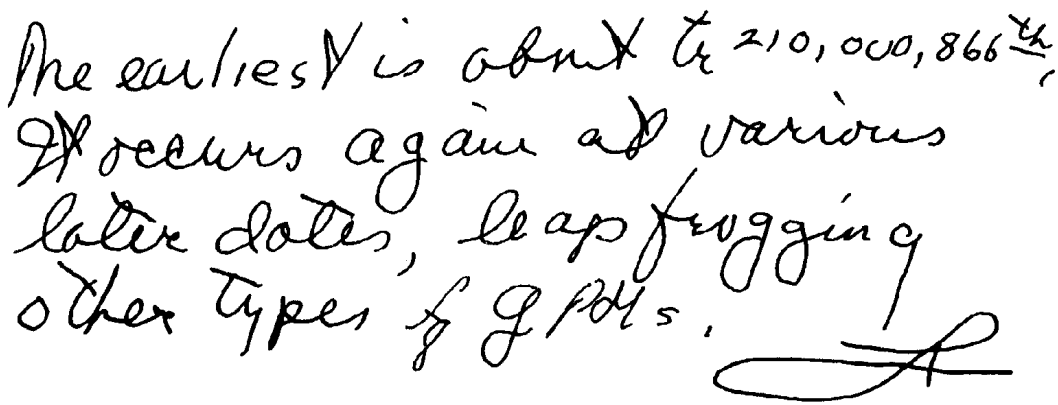 The earliest is about tr 210,000,866th.
It occurs again at various
later dates, leap frogging
other types of GPMs.